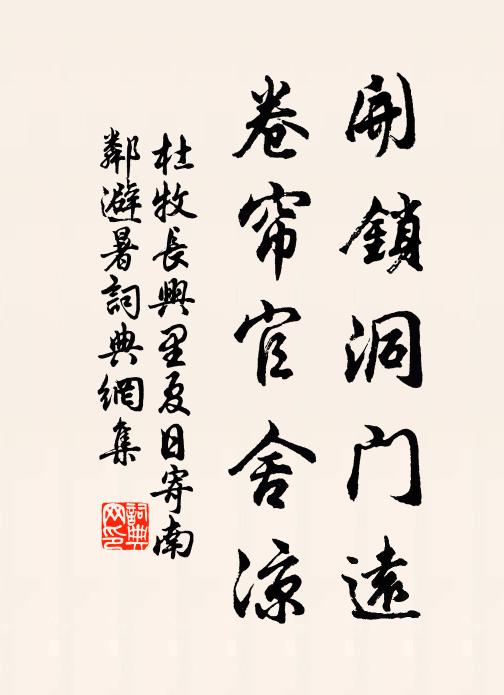 開鎖洞門遠
卷帘官舍涼
杜牧長興里夏日寄南
鄰避暑詞典網集
詞典
网印